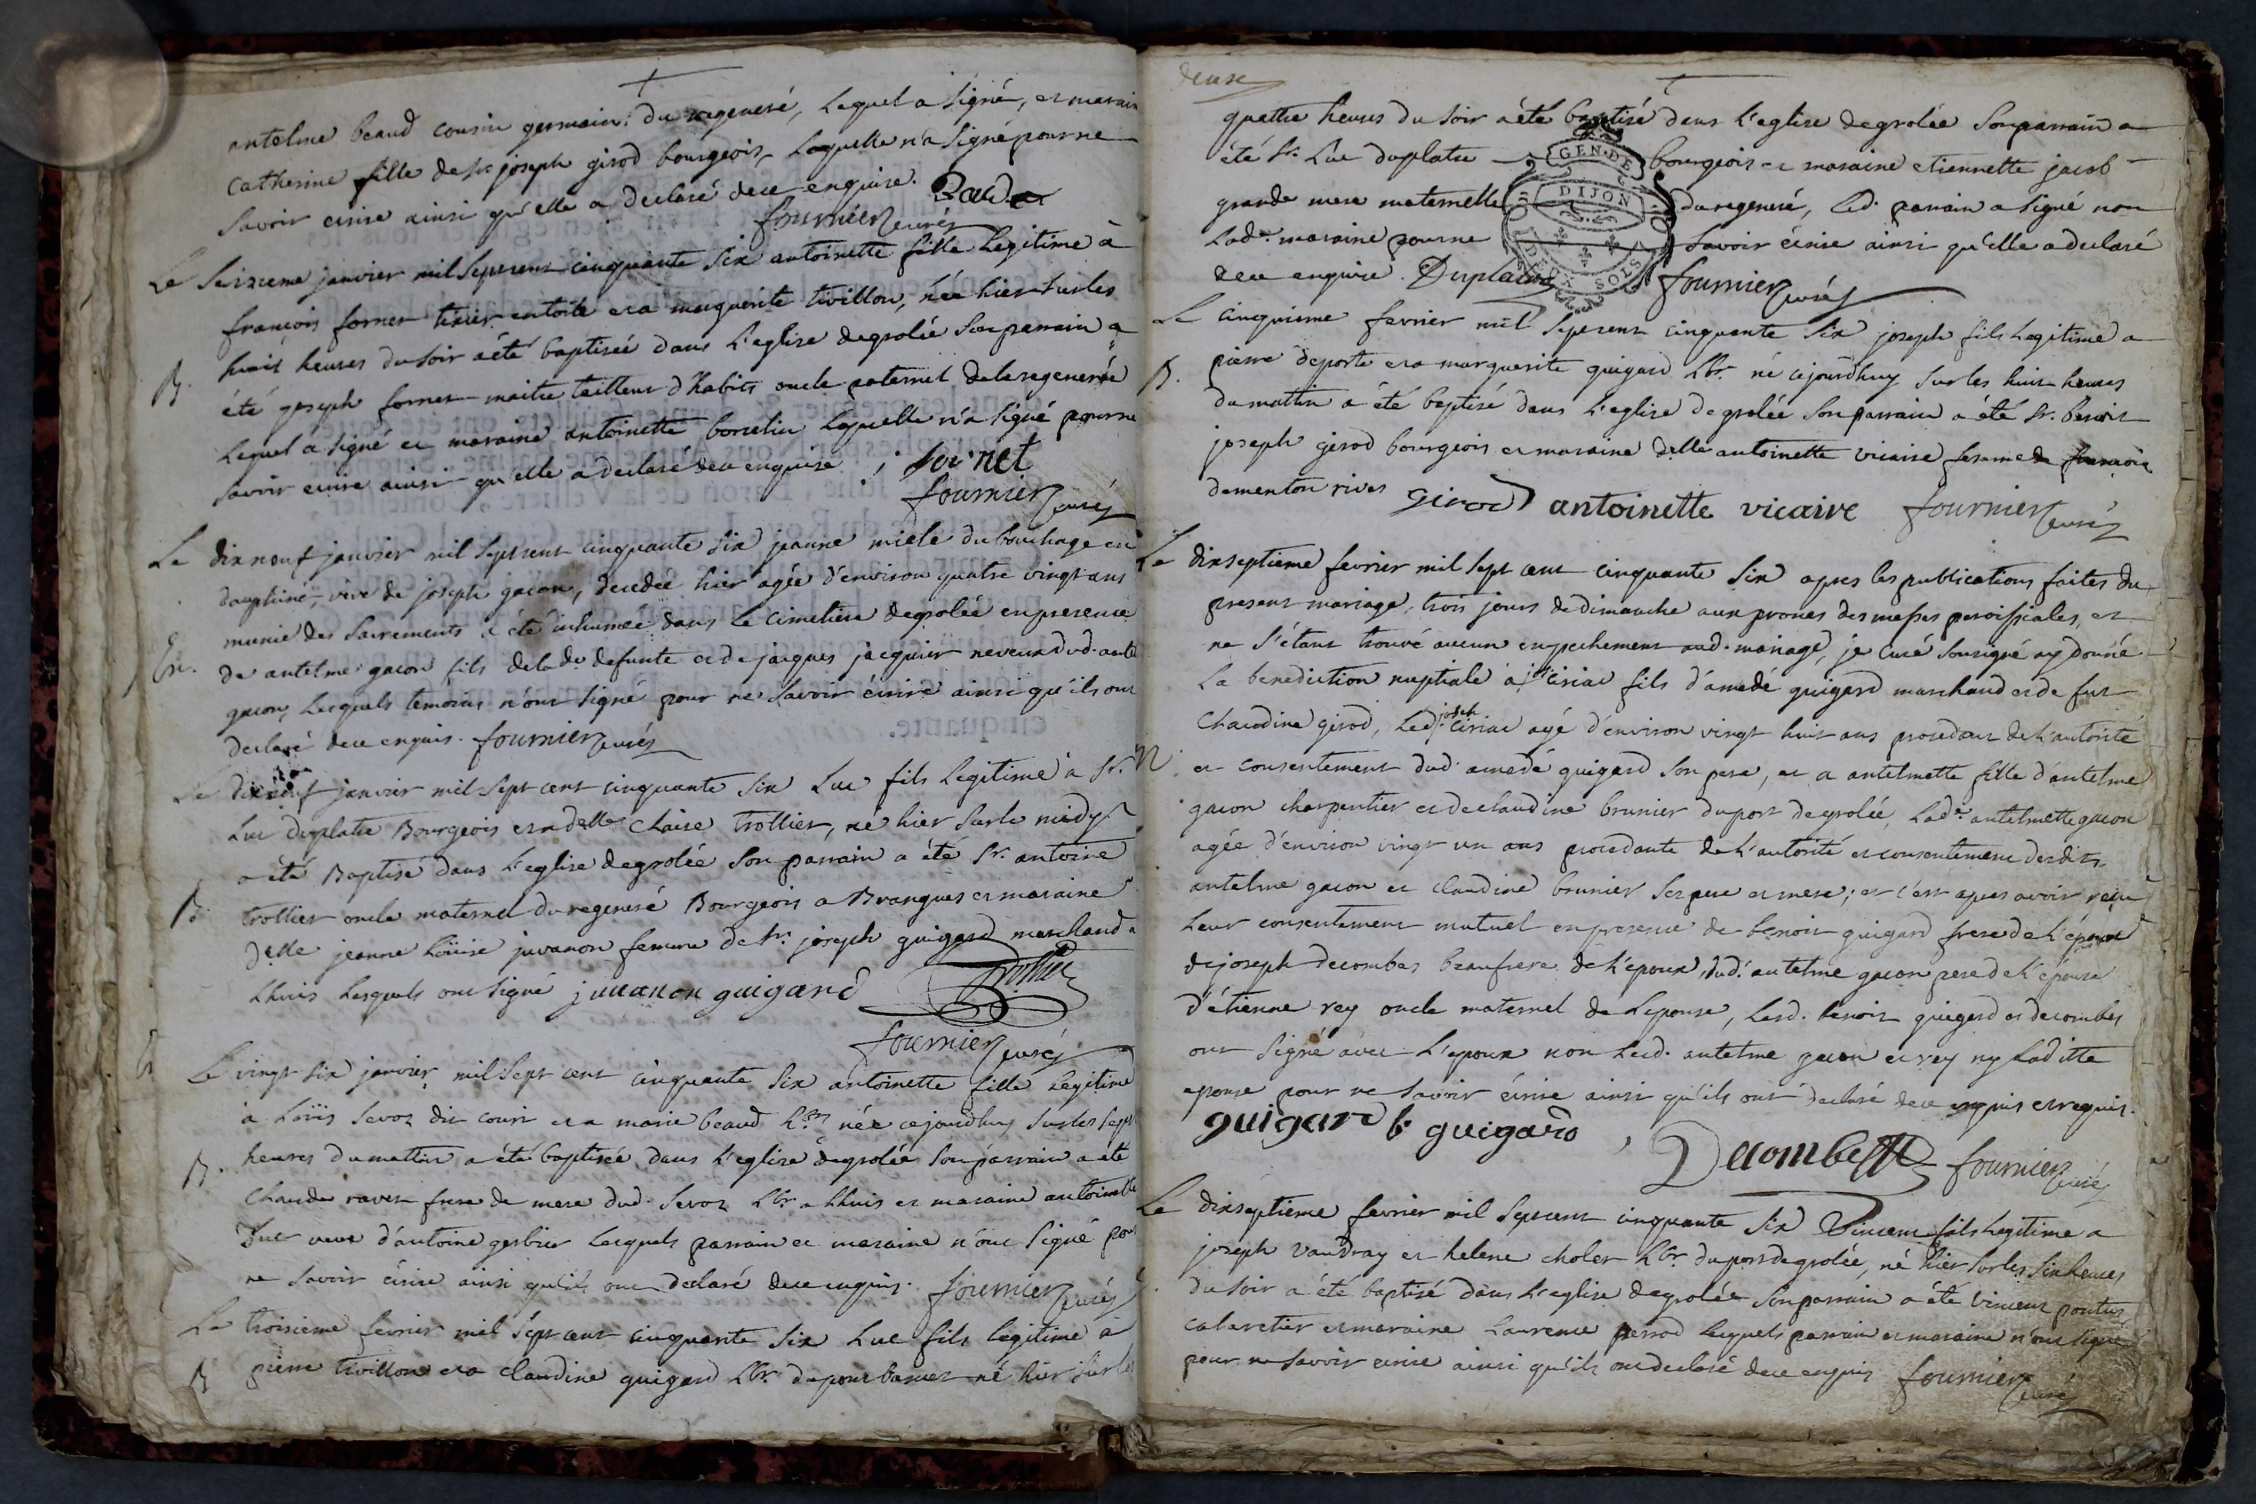 antelme beaud cousin germain du regeneré, Lequel a signé, et marain
Catherine fille de Sr joseph girod bourgeois, Laquelle n'a signé pour ne
savoir ecrire ainsi qu'elle a declaré de ce enquise. Baud
fournier curé
Le seizieme janvier mil sept cent cinquante six antoinette fille Legitime à
françois fornet tixier en toile et a marguerite trivillon, née hier sur les
B. huit heures du soir a été baptisée dans L'eglise de grolée son parrain a
été joseph fornet maitre tailleur d'habits oncle paternel de la regenerée
Lequel a signé et maraine antoinette Laquelle n'a signé pour ne
savoir ecrire ainsi qu'elle a declaré de ce enquise j fornet
fournier curé
Le dix neuf janvier mil sept cent cinquante six jeanne miele du bouchage en
dauphiné, veve de joseph gacon, decedée hier agée d'environ quatre vingt ans
munie des sacrements a été inhumée dans Le cimetiere de grolée en presence
En. de antelme gacon fils de lad. defunte et de jacques jacquier neveux dud. antel
gacon, Lesquels temoins n'ont signé pour ne savoir écrire ainsi qu'ils ont
declaré de ce enquis. fournier curé
Le janvier mil sept cent cinquante six Luc fils Legitime à Sr.
Luc duplatre Bourgeois et a delle Claire trollier, né hier sur le midy
a été Baptisé dans L'eglise de grolée son parrain a été Sr. antoine
B trollier oncle maternel du regeneré Bourgeois a Brangues et maraine
delle jeanne Loüise juvanon femme de Sr. joseph guigard marchand a
Lhuis Lesquels ont signé juuanon guigard Trollier
fournier curé
Le vingt six janvier mil sept cent cinquante six antoinette fille Legitime
à Loüis Sevoz dit couri et a marie beaud Lbrs née ce jourdhuy sur les sept
B. heures du mattin a été baptisée dans L'eglise de grolée son parrain a été
Claude ravet frere de mere dud. Sevoz Lbr. a Lhuis et maraine antoinette
veuve d'antoine gerbier Lesquels parrain et maraine n'ont signé pour
ne savoir écrire ainsi qu'ils ont declaré de ce enquis. fournier curé
Le troisieme fevrier mil sept cent cinquante six Luc fils legitime à
B pierre trivillon et a Claudine guigard Lbr. né hier sur les
deux
quattre heures du soir a été baptisé dans L'eglise de grolée son parrain a
été Sr. Luc duplatre bourgeois et maraine etiennette jacob
grande mere maternelle du regeneré, Led. parrain a signé non
Lade. maraine pour ne savoir écrire ainsi qu'elle a declaré
de ce enquise. Duplatre fournier curé
GEN. DE DIJON DEUX SOLS
Le cinquieme fevrier mil sept cent cinquante six joseph fils Legitime a
pierre deporte et a marguerite guigard Lbr. né ce jourdhuy sur les huit heures
B. du mattin a été baptisé dans L'eglise de grolée son parrain a été Sr. benoit
joseph girod bourgeois et maraine delle antoinette vicaire femme de françois
dementon rives Girod antoinette vicaire fournier curé
Le dixseptieme fevrier mil sept cent cinquante six apres les publications faites du
present mariage, trois jours de dimanche aux prones des messes paroissiales, et
ne s'étant trouvé aucun empechement aud. mariage, je curé sousigné ay donné
La benediction nuptiale à jph ciriac fils d'amedé guigard marchand et de fut
Claudine girod, Led. joseph Ciriac agé d'environ vingt huit ans procedant de L'autorité
M et consentement dud. amedé guigard son pere, et a antelmette fille d'antelme
gacon charpentier et de claudine brunier du port de grolée, Lade. antelmette gacon
agée d'environ vingt un ans procedante de L'autorité et consentement desdits
antelme gacon et claudine brunier ses pere et mere; et c'est apres avoir reçu
Leur consentement mutuel en presence de benoit guigard frere de L'époux
de joseph decombes beaufrere de L'époux, dud. antelme gacon pere de L'épouse
d'étienne rey oncle maternel de L'epouse, Lesd. benoit guigard et decombes
ont signé avec L'epoux non Lesd. antelme gacon et rey ny Laditte
epouse pour ne savoir écrire ainsi qu'ils ont declaré de ce enquis et requis.
guigard b. guigard Decombes fournier curé
Le dixseptieme fevrier mil sept cent cinquante six Vincent fils Legitime a
joseph vaudray et helene cholet Lbr. du port de grolée, né hier sur les six heures
du soir a été baptisé dans L'eglise de grolée son parrain a été vincent pontus
cabaretier et maraine Laurence perrod Lesquels parrain et maraine n'ont signé
pour ne savoir ecrire ainsi qu'ils ont declaré de ce enquis fournier curé